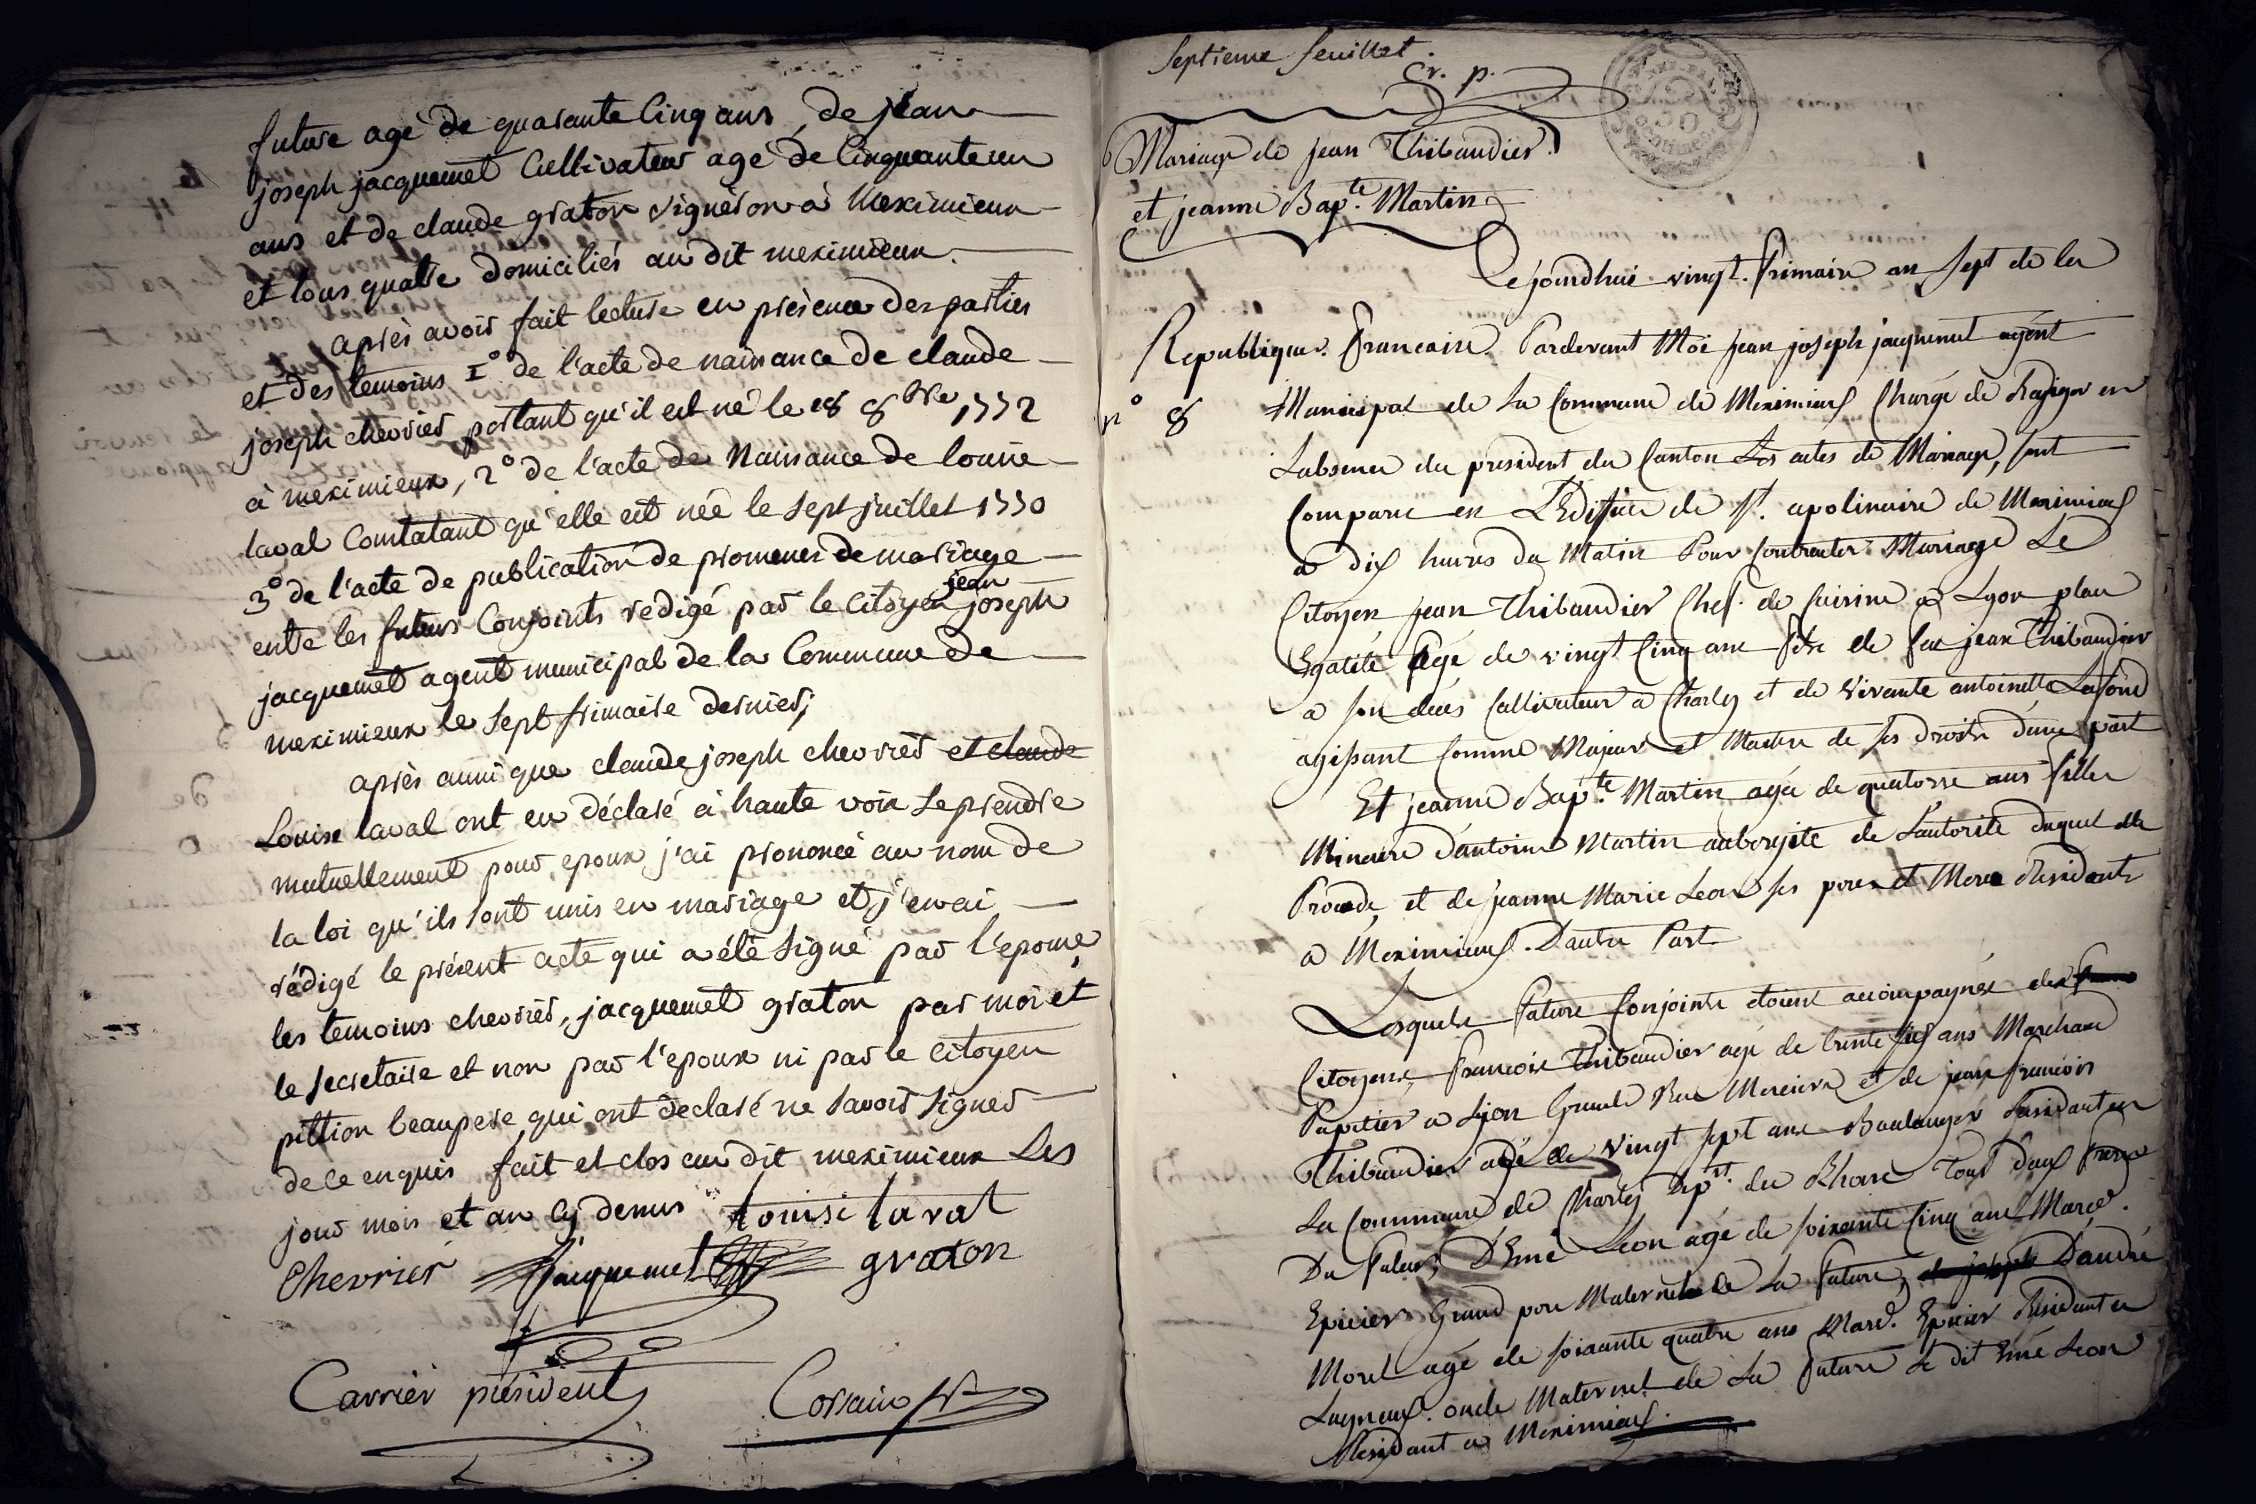 future agé de quarante Cinq ans, de jean
joseph jacquemet Cultivateur agé de Cinquante un
ans et de claude graton vigneron à Meximieux
et tous quatre domiciliés au dit meximieux.
après avoir fait lecture en présence des parties
et des temoins 1° de l'acte de naissance de claude
joseph chevrier portant qu'il est né le 18 8bre 1772
à meximieux, 2° de l'acte de Naissance de louise
laval Constatant qu'elle est née le sept juillet 1770
3° de l'acte de publication de promesses de mariage
jean
entre les futurs Conjoints redigé par le Citoyen joseph
jacquemet agent municipal de la Commune de
meximieux le sept frimaire dernier;
après aussi que claude joseph chevrier et claude
Louise laval ont eu déclaré à haute voix se prendre
mutuellement pour epoux j'ai prononcé au nom de
la loi qu'ils sont unis en mariage et j'en ai
rédigé le présent acte qui a été signé par l'epouse
les temoins chevrier, jacquemet graton par moi et
le secretaire et non par l'epoux ni par le Citoyen
pittion beaupere qui ont déclaré ne savoir signer
de ce enquis fait et clos au dit meximieux Les
jour mois et an cy dessus Louise laval
Chevrier Jacquemet graton
Carrier président Corsain
Septieme feuillet.
Cr. p.
Mariage de jean Thibaudier
et jeanne Bapte. Martin
Cejourdhui vingt. Frimaire an Sept de la
Republique. Francaise. Pardevant Moi jean joseph jacquemet agent
n° 8 Municipal de La Commune de Meximieux Chargé de Rediger en
Labsence du president du Canton Les actes de Mariage, sont
Comparu en L'Edifice de St. apolinaire de Meximieux
a dix heures du Matin Pour Contracter Mariage Le
Citoyen jean Thibaudier Chef. de Cuisine a Lyon place
Egalité Agé de vingt Cinq ans fils de feu jean Thibaudier
a son deces Cultivateur a Charly et de Vivante antoinette Lafond
agissant Comme Majeur et Maitre de ses droits d'une part
Et jeanne Bapte. Martin agée de quatorze ans fille
Mineure d'antoine Martin aubergiste de Lautorité duquel elle
Procede, et de jeanne Marie Leon ses pere et Mere Residents
a Meximieux. D'autre Part
Lesquels Future Conjoints etoient accompagnés des
Citoyens, Francois Thibaudier agé de trente six ans Marchand
Papetier a Lyon Grande Rue Merciere et de jean francois
Thibaudier agé de vingt sept ans Boulanger Residant en
La Commune de Charly Dept. du Rhone Tous Deux freres
Du Futur, D'Emé Leon agé de soixante Cinq ans Marcd.
Epicier Grand pere Maternel de La Future, D'andré
Morel agé de soixante quatre ans Marcd. Epicier Residant a
Lagnieux. oncle Maternel de La Future Le dit Emé Leon
Residant a Meximieux.